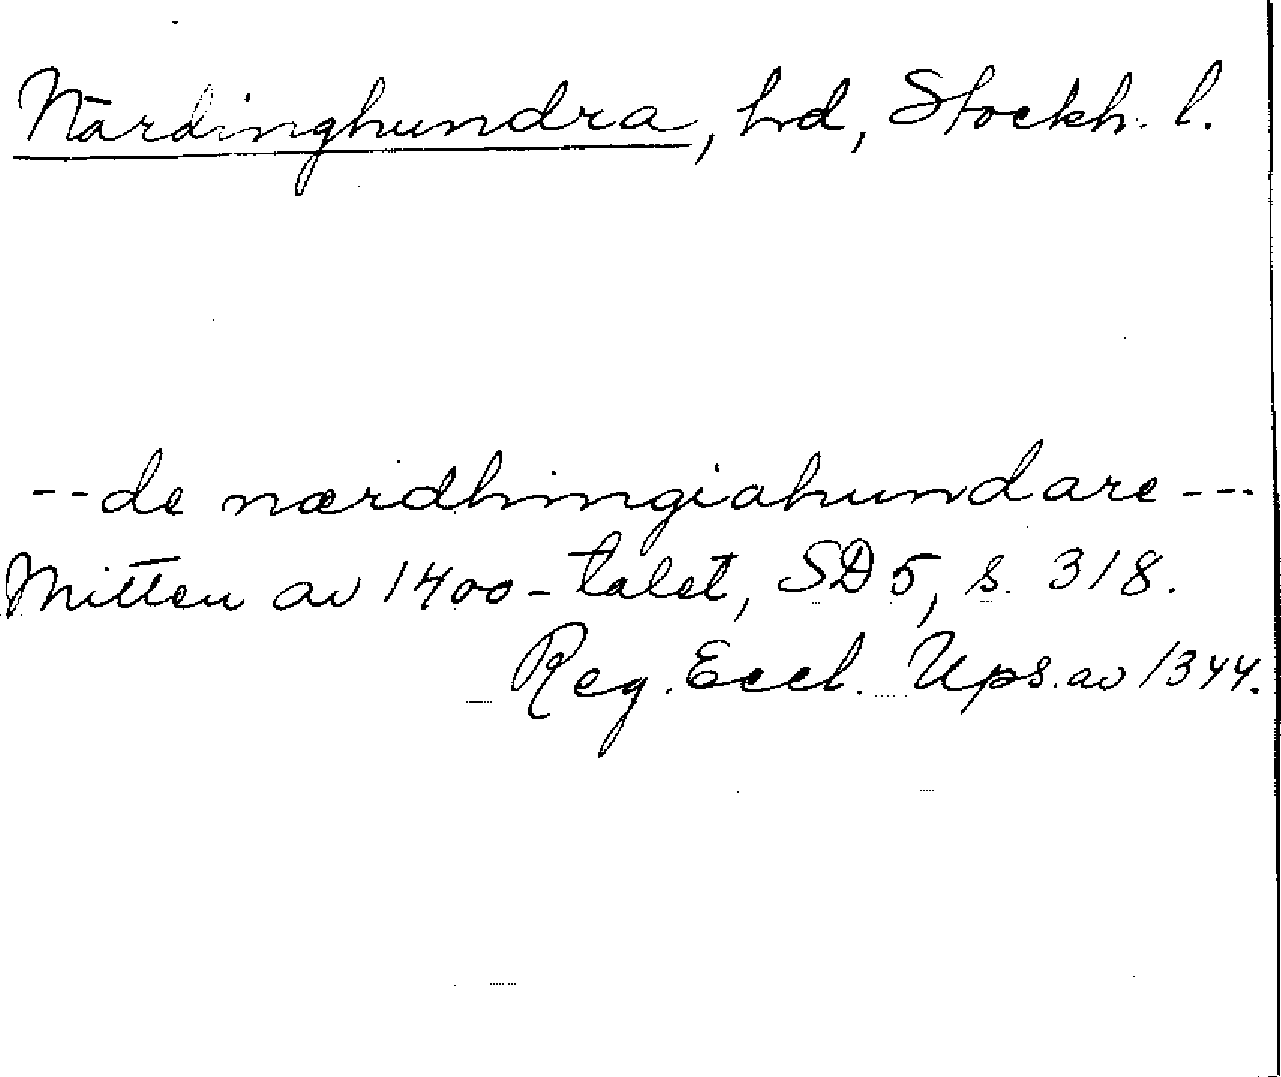 Närdinghundra, hd, Stockh. l.
--de nærdhingiahundare---
Mitten av 1400-talet, SD 5, s. 318.
Reg. Eccl. Ups. av 1344.